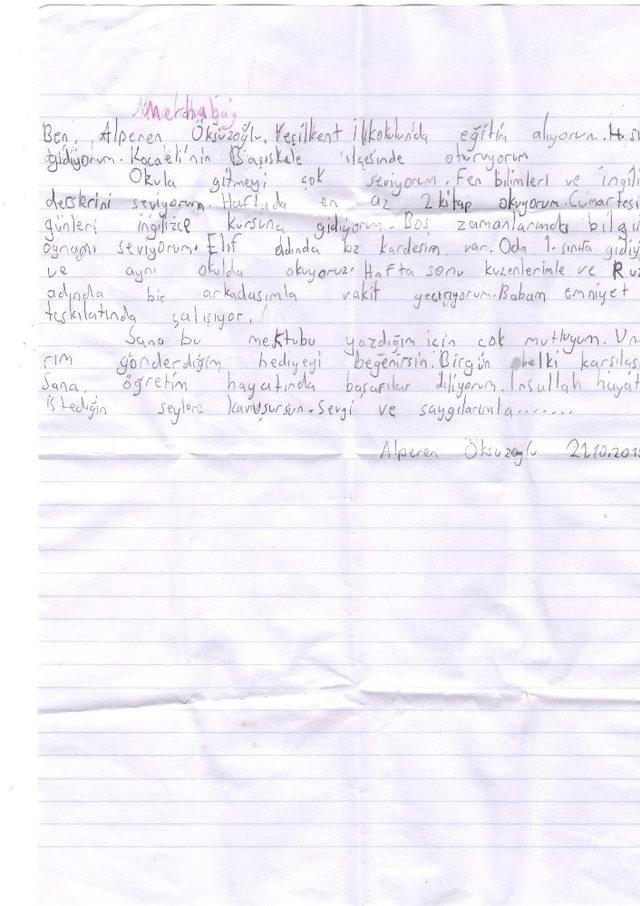 Merhaba
Ben, Alperen Öksüzoğlu. Yeşilkent İlkokulunda eğitim alıyorum. 4. sı
gidiyorum. Kocaeli'nin Başiskele ilçesinde oturuyorum
Okula gitmeyi çok seviyorum. Fen bilimleri ve ingili
derslerini seviyorum. Haftada en az 2 kitap okuyorum. Cumartesi
günleri ingilizce kursuna gidiyorum. Boş zamanlarımda bilgi
oynamı seviyorum. Elif adında bir kardeşim var. Oda 1. sınıfa gidiy
ve aynı okulda okuyoruz. Hafta sonu kuzenlerimle ve Rüz
adında bir arkadaşımla vakit geçiriyorum. Babam emniyet
teşkilatında çalışıyor.
Sana bu mektubu yazdığım için çok mutluyum. Um
rım gönderdiğim hediyeyi beğenirsin. Birgün belki karşılaş
Sana, öğretim hayatında başarılar diliyorum. İnşullah hayat
istediğin şeylere kavuşursun. Sevgi ve saygılarımla.......
Alperen Öksüzoglu 21.10.201